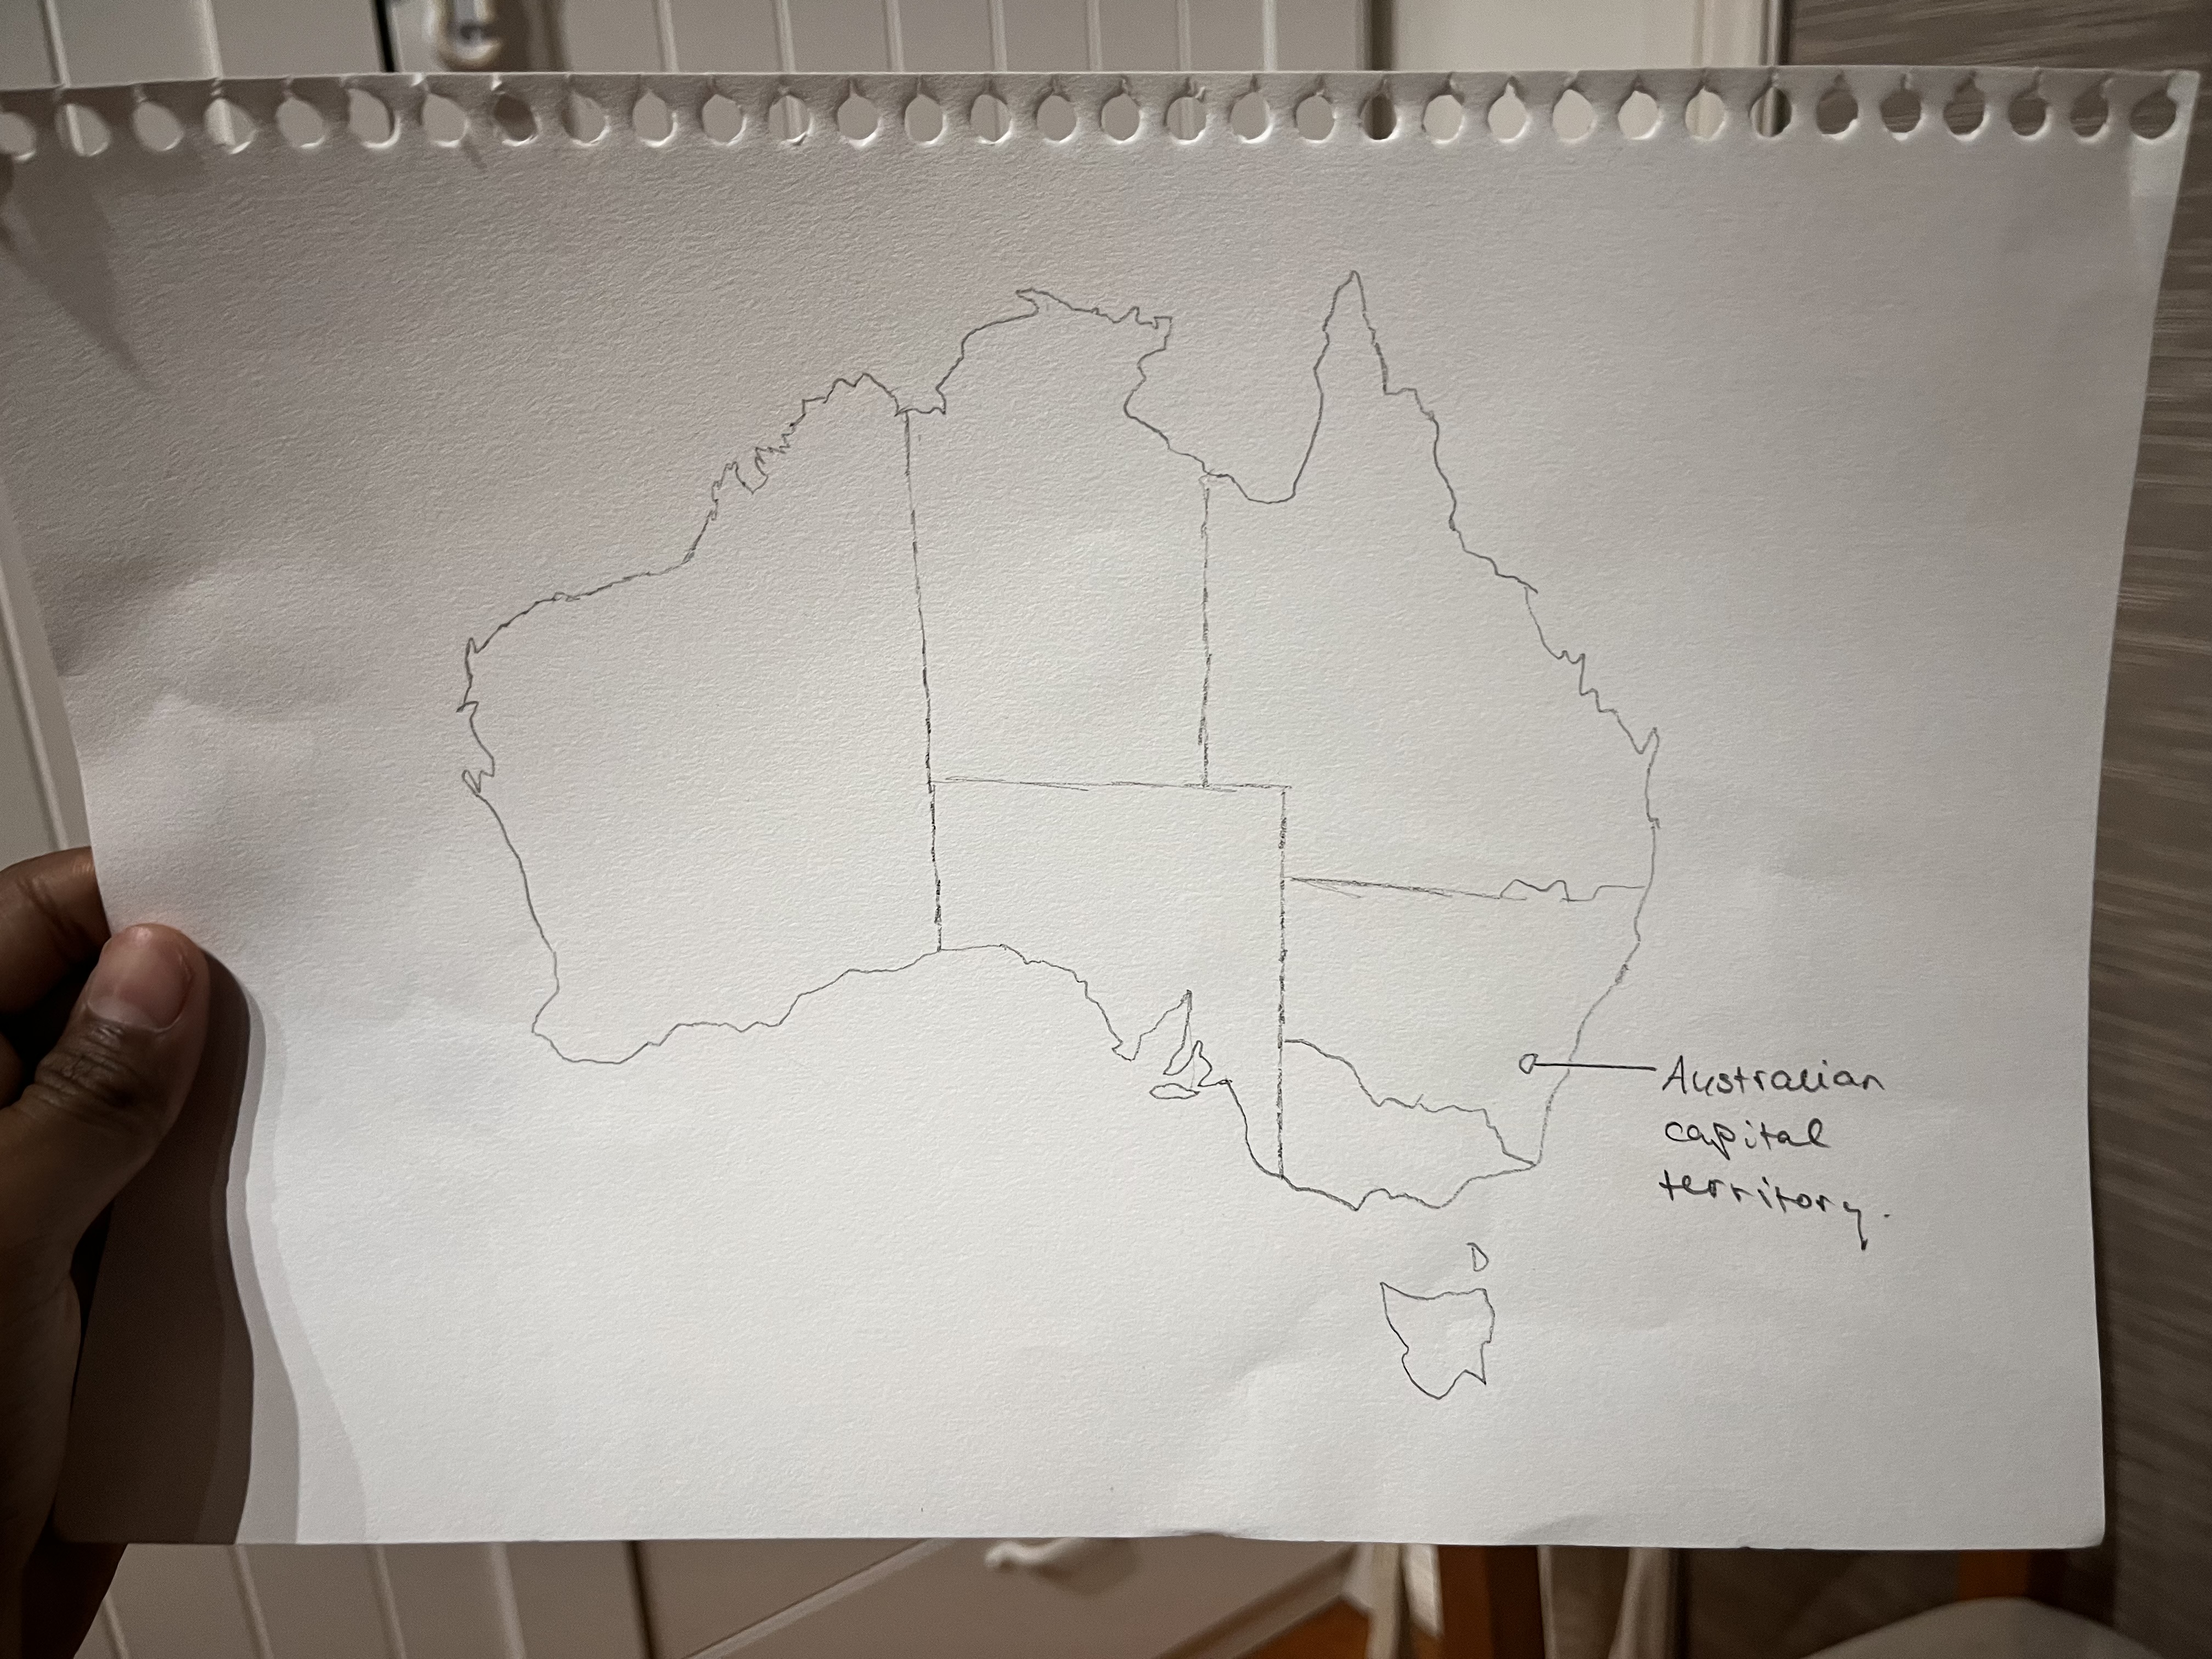 Australian
capital
territory.